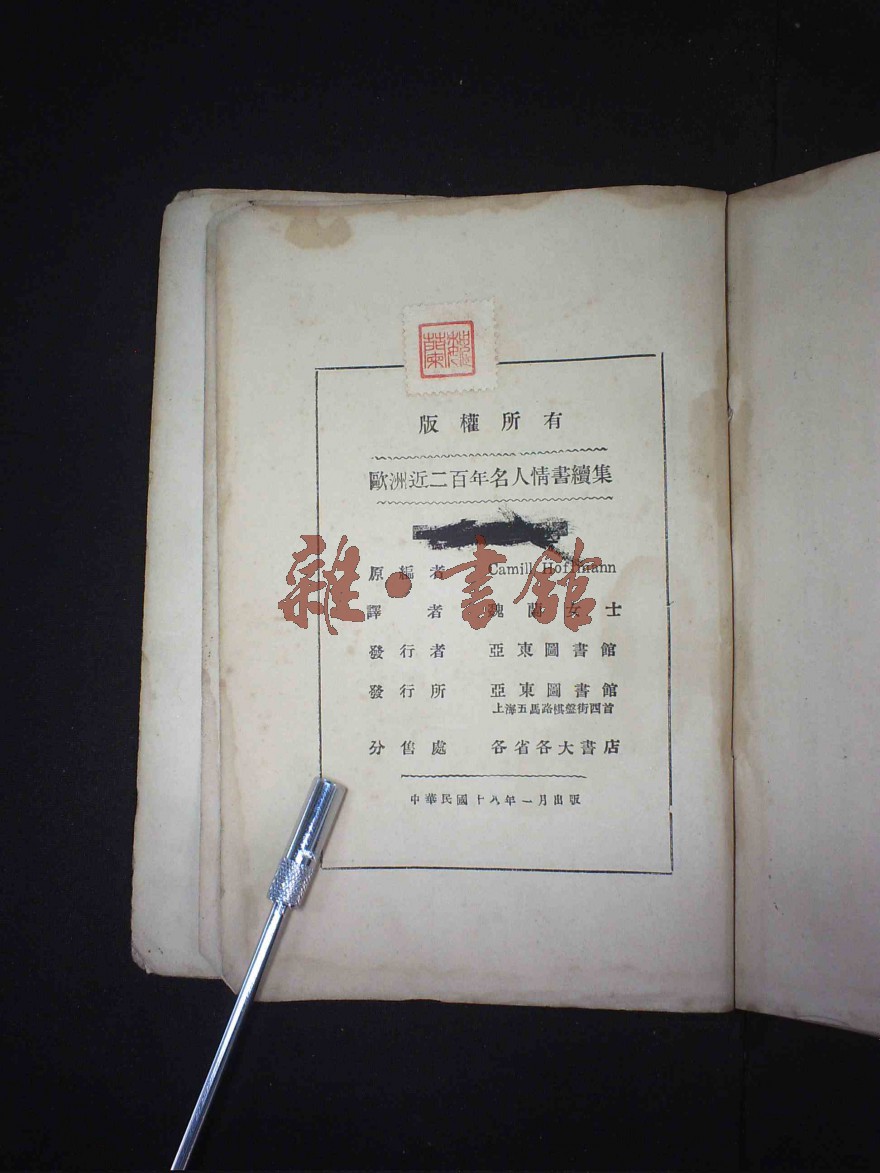 版權所有
歐洲近二百年名人情書續集
原編者 Camill Hoffmann
譯者 魏蘭女士
發行者 亞東圖書館
發行所 亞東圖書館
上海五馬路棋盤街西首
分售處 各省各大書店
中華民國十八年一月出版
雜·書館